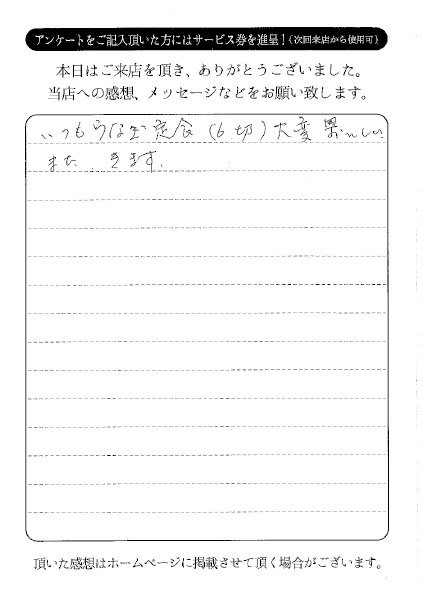 アンケートをご記入頂いた方にはサービス券を進呈！（次回来店から使用可）
本日はご来店を頂き、ありがとうございました。
当店への感想、メッセージなどをお願い致します。
いつもうなぎ定食（6切）大変美味しい
また きます.
頂いた感想はホームページに掲載させて頂く場合がございます。